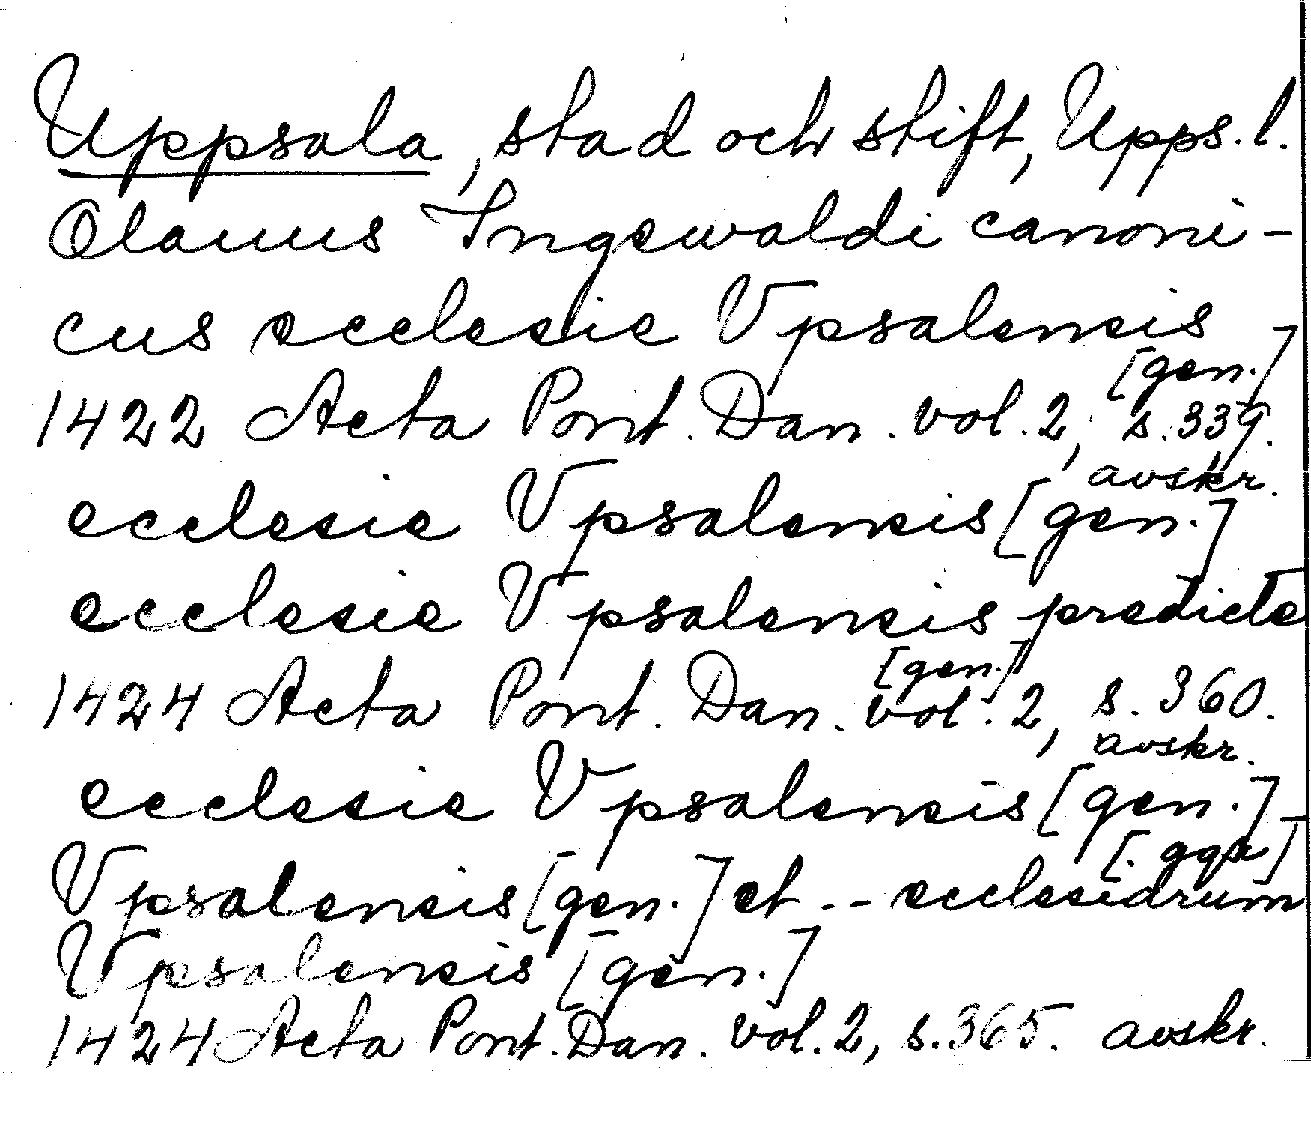 Uppsala, stad och stift, Upps. l.
Olauus Ingewaldi canoni-
cus ecclesie Vpsalensis
[gen.]
1422 Acta Pont. Dan. vol. 2, s. 339.
avskr.
ecclesie Vpsalensis [gen.]
ecclesie Vpsalensis predicte
[gen.]
1424 Acta Pont. Dan. vol. 2, s. 360.
avskr.
ecclesie Vpsalensis [gen.] -
Vpsalensis [gen.] et -- ecclesiarum
Vpsalensis [gen.]
1424 Acta Pont. Dan. vol. 2, s. 365. avskr.